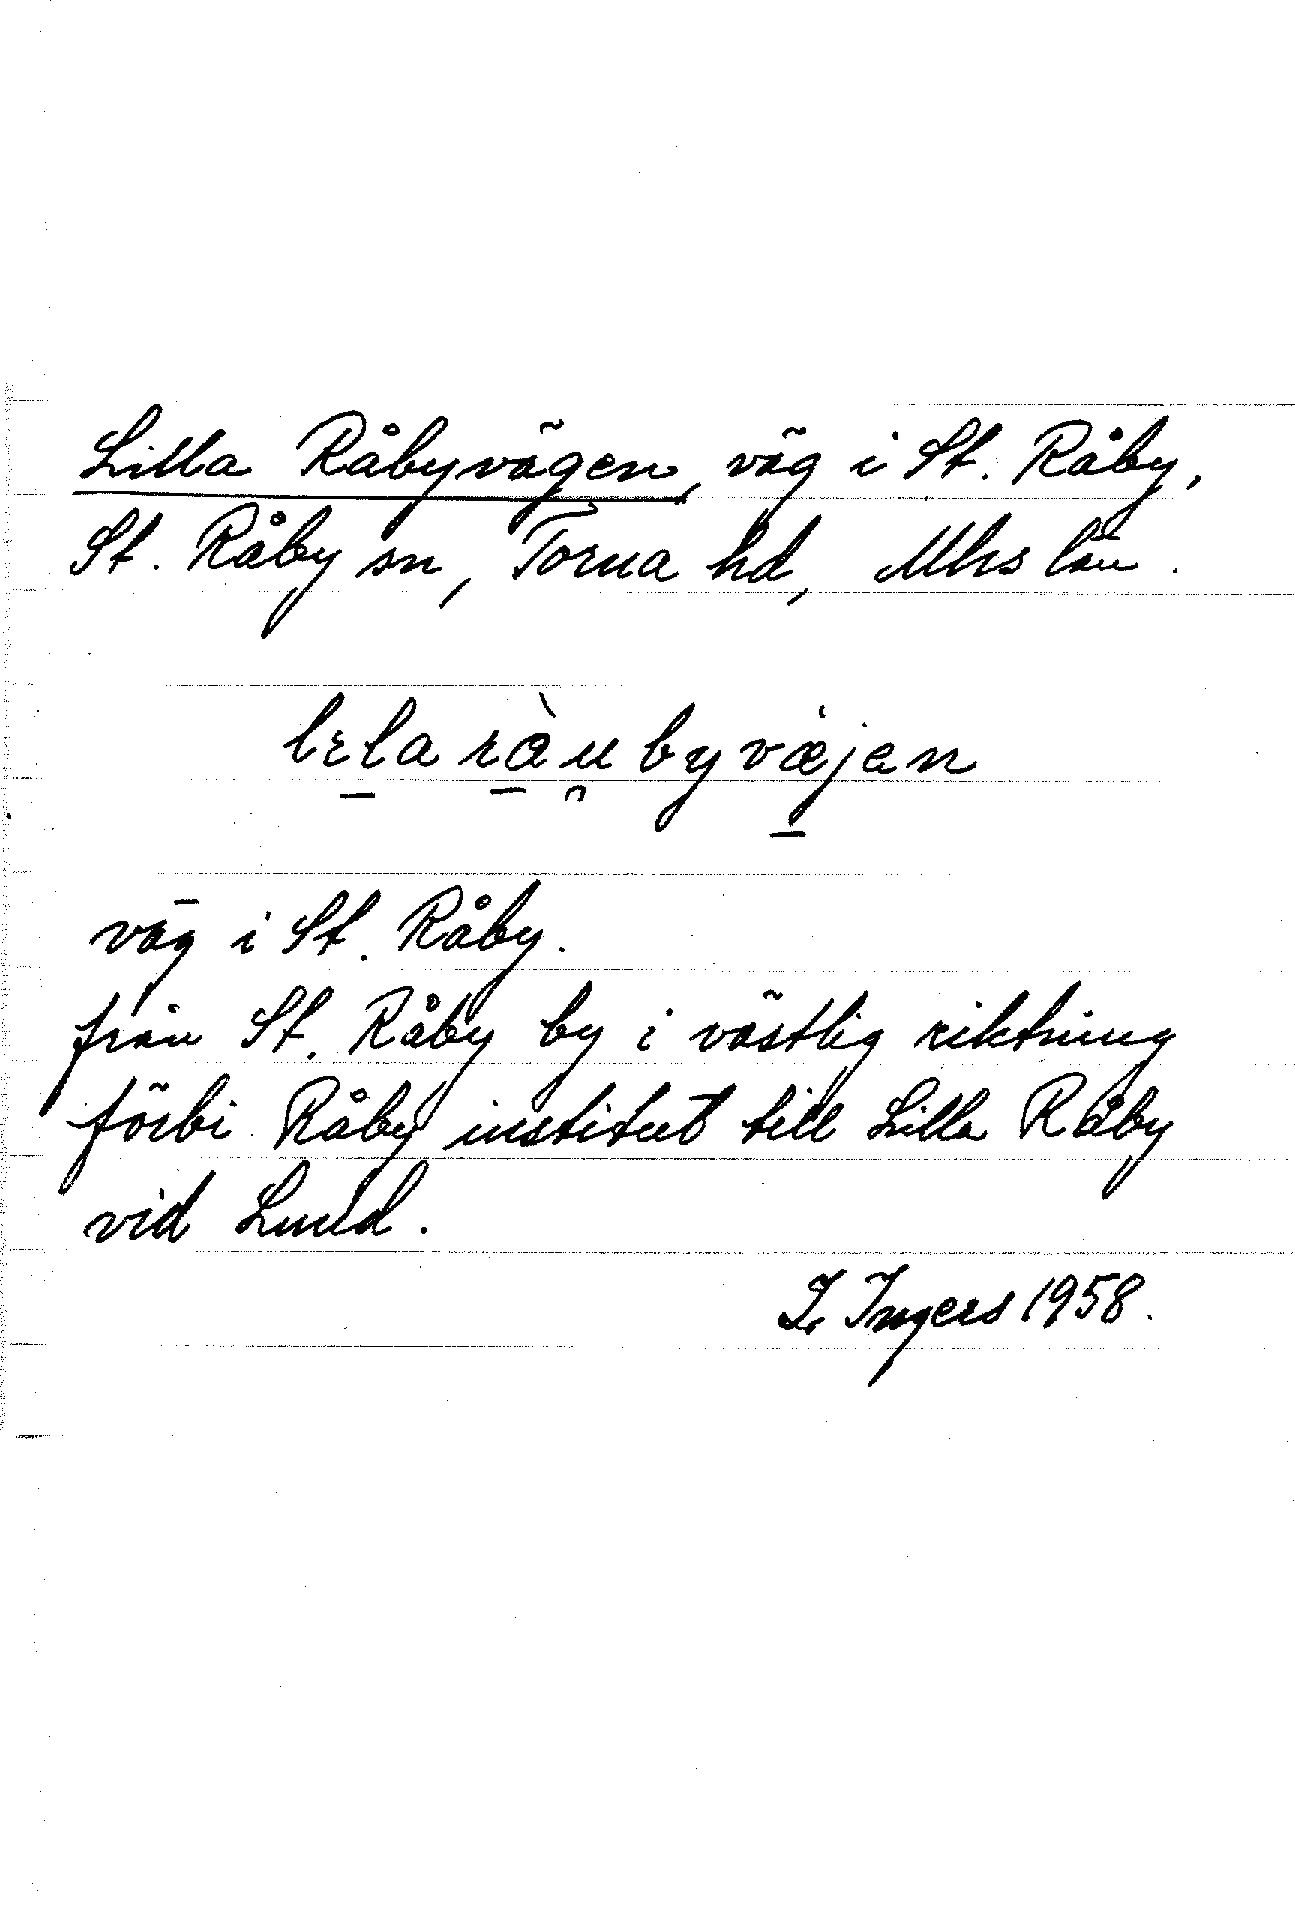 Lilla Råbyvägen, väg i St. Råby,
St. Råby sn, Torna hd, Mhs län.
lɛla ràu̯byvæjen
väg i St. Råby.
från St. Råby by i västlig riktning
förbi Råby institut till Lilla Råby
vid Lund.
I. Ingers 1958.